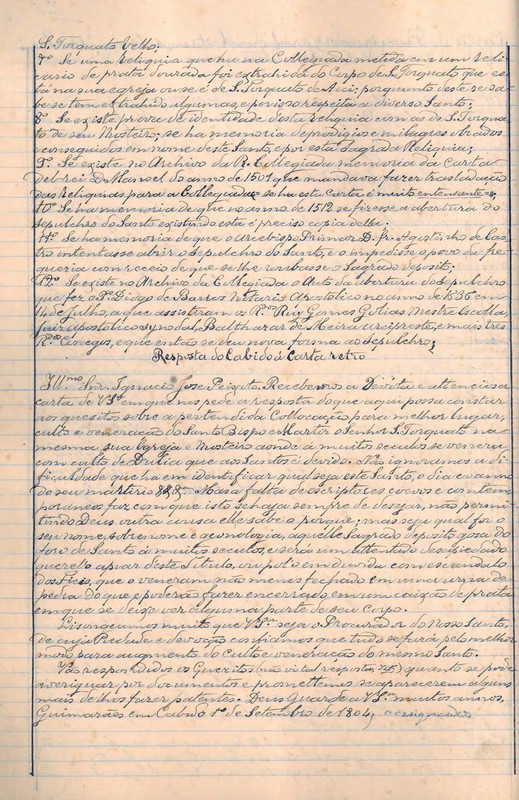 S. Torquato Velho;
7º Se uma Reliquia que ha na Collegiada metida em um Reli-
cario de prata dourada foi extrahida do Corpo de S. Torquato que es-
tá na sua egreja ou se é de S. Torquato de Aci; porquanto deste se sa-
be se tem extrahido algumas, e por isso respeita a diverso Santo;
8º Se existe prova de identidade desta Reliquia com as de S. Torqua-
to de seu Mosteiro; se ha memoria de prodigios e milagres obrados
conseguidos em nome deste Santo, e por esta Sagrada Reliquia;
9º Se existe no Archivo da R. Collegiada memoria da Carta
del-rei D. Manoel do anno de 1501 que mandava fazer trasladação
das Reliquias para a Collegiada; se ha esta carta é muito entensante;
10º Se ha memoria de que no anno de 1512 se fizesse a abertura do
Sepulchro do Santo existindo esta é preciso copia della;
11º Se ha memoria de que o arcebispo Primaz D. Fr. Agostinho de Cas-
tro intentasse abrir o Sepulchro do Santo, e o impedisse o povo da fre-
gueria com receio de que se lhe roubasse o Sagrado deposito;
12º Se existe no Archivo da Collegiada o Acto da abertura do Sepulchro
que fez o Pe. Diogo de Barros Notario Apostolico no anno de 1636 em
14 de julho, a que assistiram os Rdos Ruy Gomes Golias Mestre Escolla,
Juiz apostolico synodal, Balthazar de Meira arcipreste, e mais tres
R.dos Conegos, e que então se deu nova forma ao sepulchro;
Resposta do Cabido á Carta retro
Ill.mo Snr. Ignacio Jose Peixoto. Recebemos a Devota e attenciosa
carta de V Sª em que nos pede a resposta do que aqui possa constar
aos quesitos sobre a pertendida Collocação para melhor lugar,
culto e veneração do Santo Bispo e Martir o Senhor S. Torquato na
mesma sua Egreja e Mosteiro aonde á muitos seculos se venera
com culto de Dulia que aos Santos é devido. Não ignoramos a di-
ficuldade que ha em identificar qual seja este Santo, o dia e anno
do seu martirio A falta de escriptores coevos e contem-
poraneos faz com que isto se haja sempre de desejar, não permi-
tindo Deus outra cousa elle sabe o porque; mas seja qual for o
seu nome, sobrenome e geonologia, aquelle Sagrado deposito gosa do
foro de Santo á muitos seculos, e será um attentado desapiedado
querel-o apiar deste Titulo, ou pol-o em duvida com escandalo
dos Fieis, que o veneram não menos fechado em uma urna de
pedra do que o poderão fazer encerrado em um caixão de prata
em que se deixe ver alguma parte de seu Corpo.
Lisongeamos muito que V Sª seja o Procurador do Nosso Santo,
de cuja Piedade e devoção confiamos que tudo se fará pelo melhor
modo para augmento do Culto e veneração do mesmo Santo.
Vão respondidos os Quesitos (não vi tal resposta) quanto se pode
averiguar por documentos e promettemos se apparecerem alguns
mais de lhos fazer patentes. Deus Guarde a V Sª muitos annos,
Guimarães em Cabido 1º de Setembro de 1804;